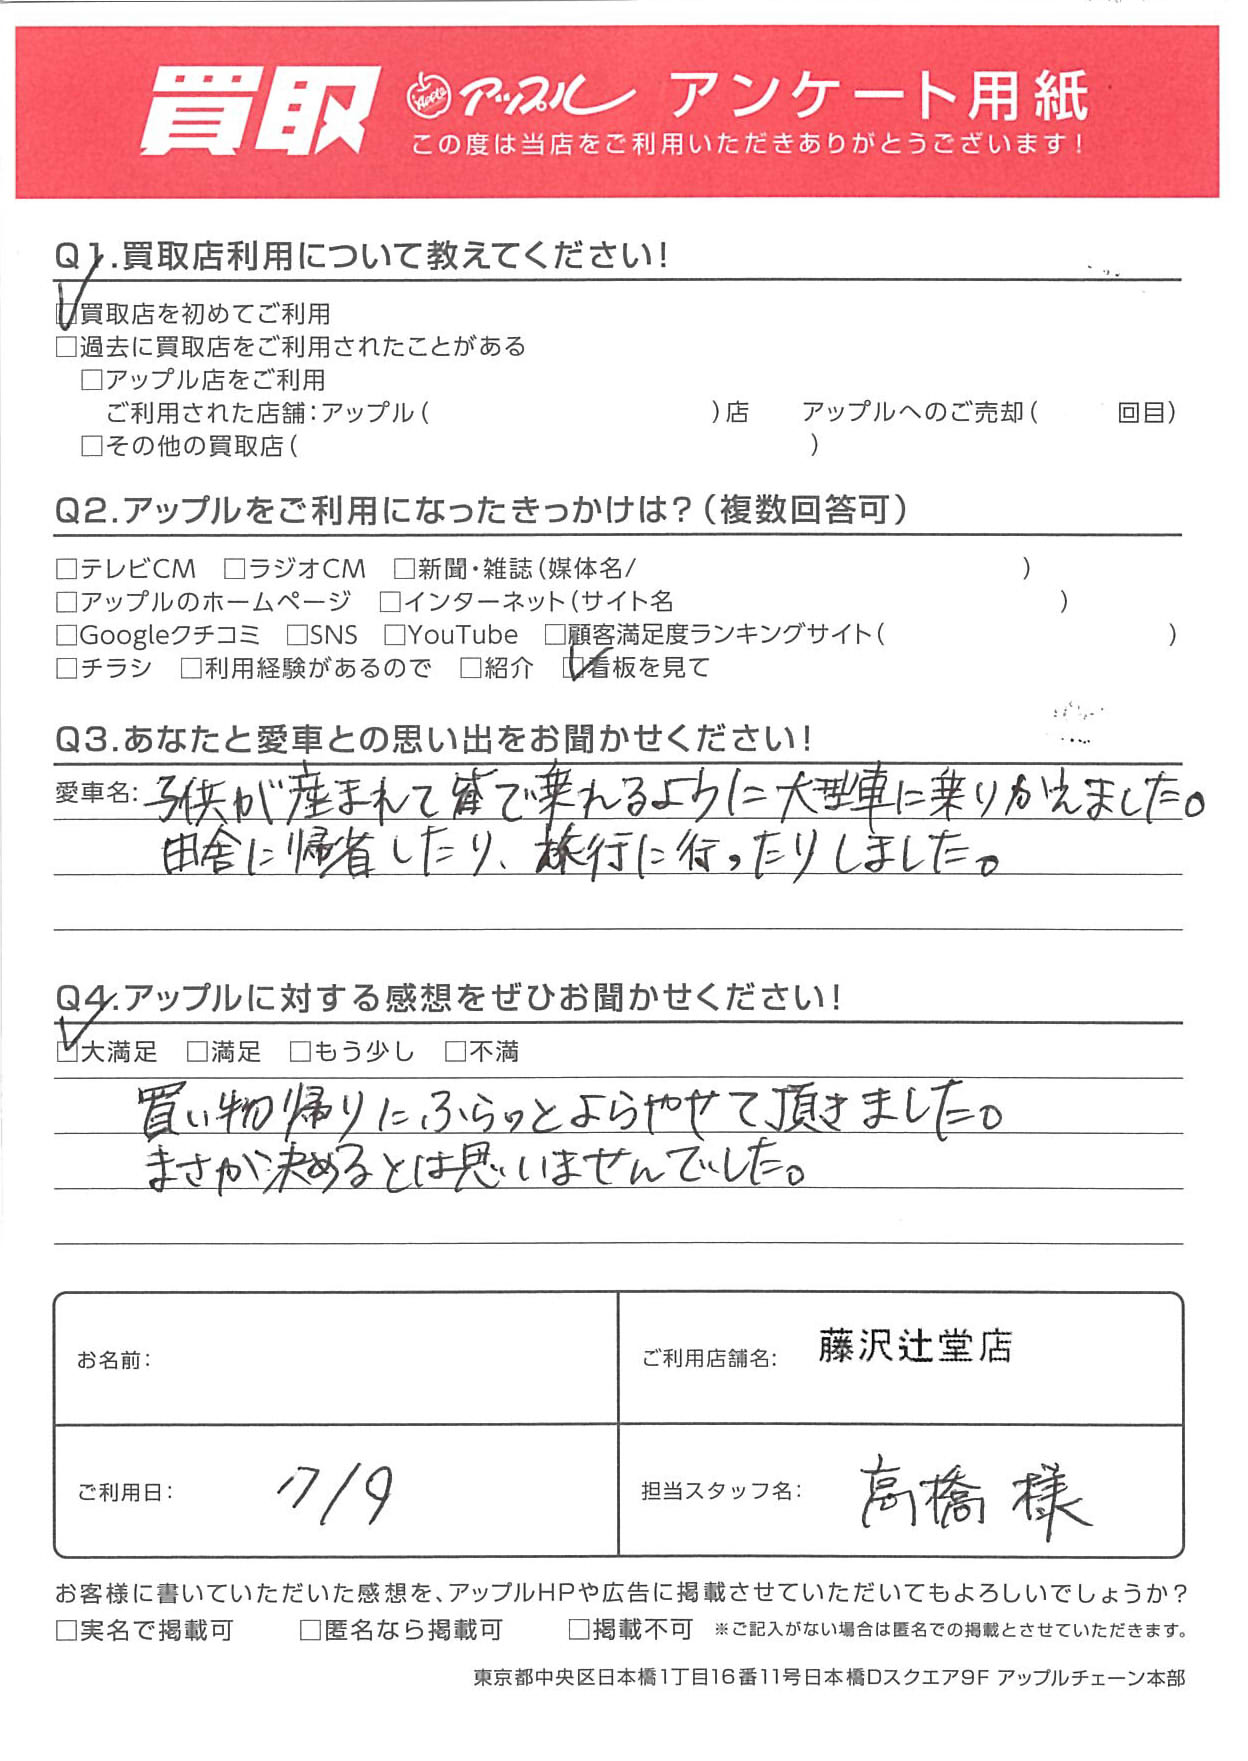 買取 Apple アップル アンケート用紙
この度は当店をご利用いただきありがとうございます！
Q1.買取店利用について教えてください！
☑買取店を初めてご利用
□過去に買取店をご利用されたことがある
□アップル店をご利用
ご利用された店舗：アップル（ ）店 アップルへのご売却（ 回目）
□その他の買取店（ ）
Q2.アップルをご利用になったきっかけは？（複数回答可）
□テレビCM □ラジオCM □新聞・雑誌（媒体名/ ）
□アップルのホームページ □インターネット（サイト名 ）
□Googleクチコミ □SNS □YouTube □顧客満足度ランキングサイト（ ）
□チラシ □利用経験があるので □紹介 ☑看板を見て
Q3.あなたと愛車との思い出をお聞かせください！
愛車名: 子供が産まれて皆で乗れるように大型車に乗りかえました。
田舎に帰省したり、旅行に行ったりしました。
Q4.アップルに対する感想をぜひお聞かせください！
☑大満足 □満足 □もう少し □不満
買い物帰りにふらっとよらやせて頂きました。
まさか決めるとは思いませんでした。
お名前：
ご利用店舗名： 藤沢辻堂店
ご利用日： 7/9
担当スタッフ名： 高橋 様
お客様に書いていただいた感想を、アップルHPや広告に掲載させていただいてもよろしいでしょうか？
□実名で掲載可 □匿名なら掲載可 □掲載不可 ※ご記入がない場合は匿名での掲載とさせていただきます。
東京都中央区日本橋1丁目16番11号日本橋Dスクエア9F アップルチェーン本部